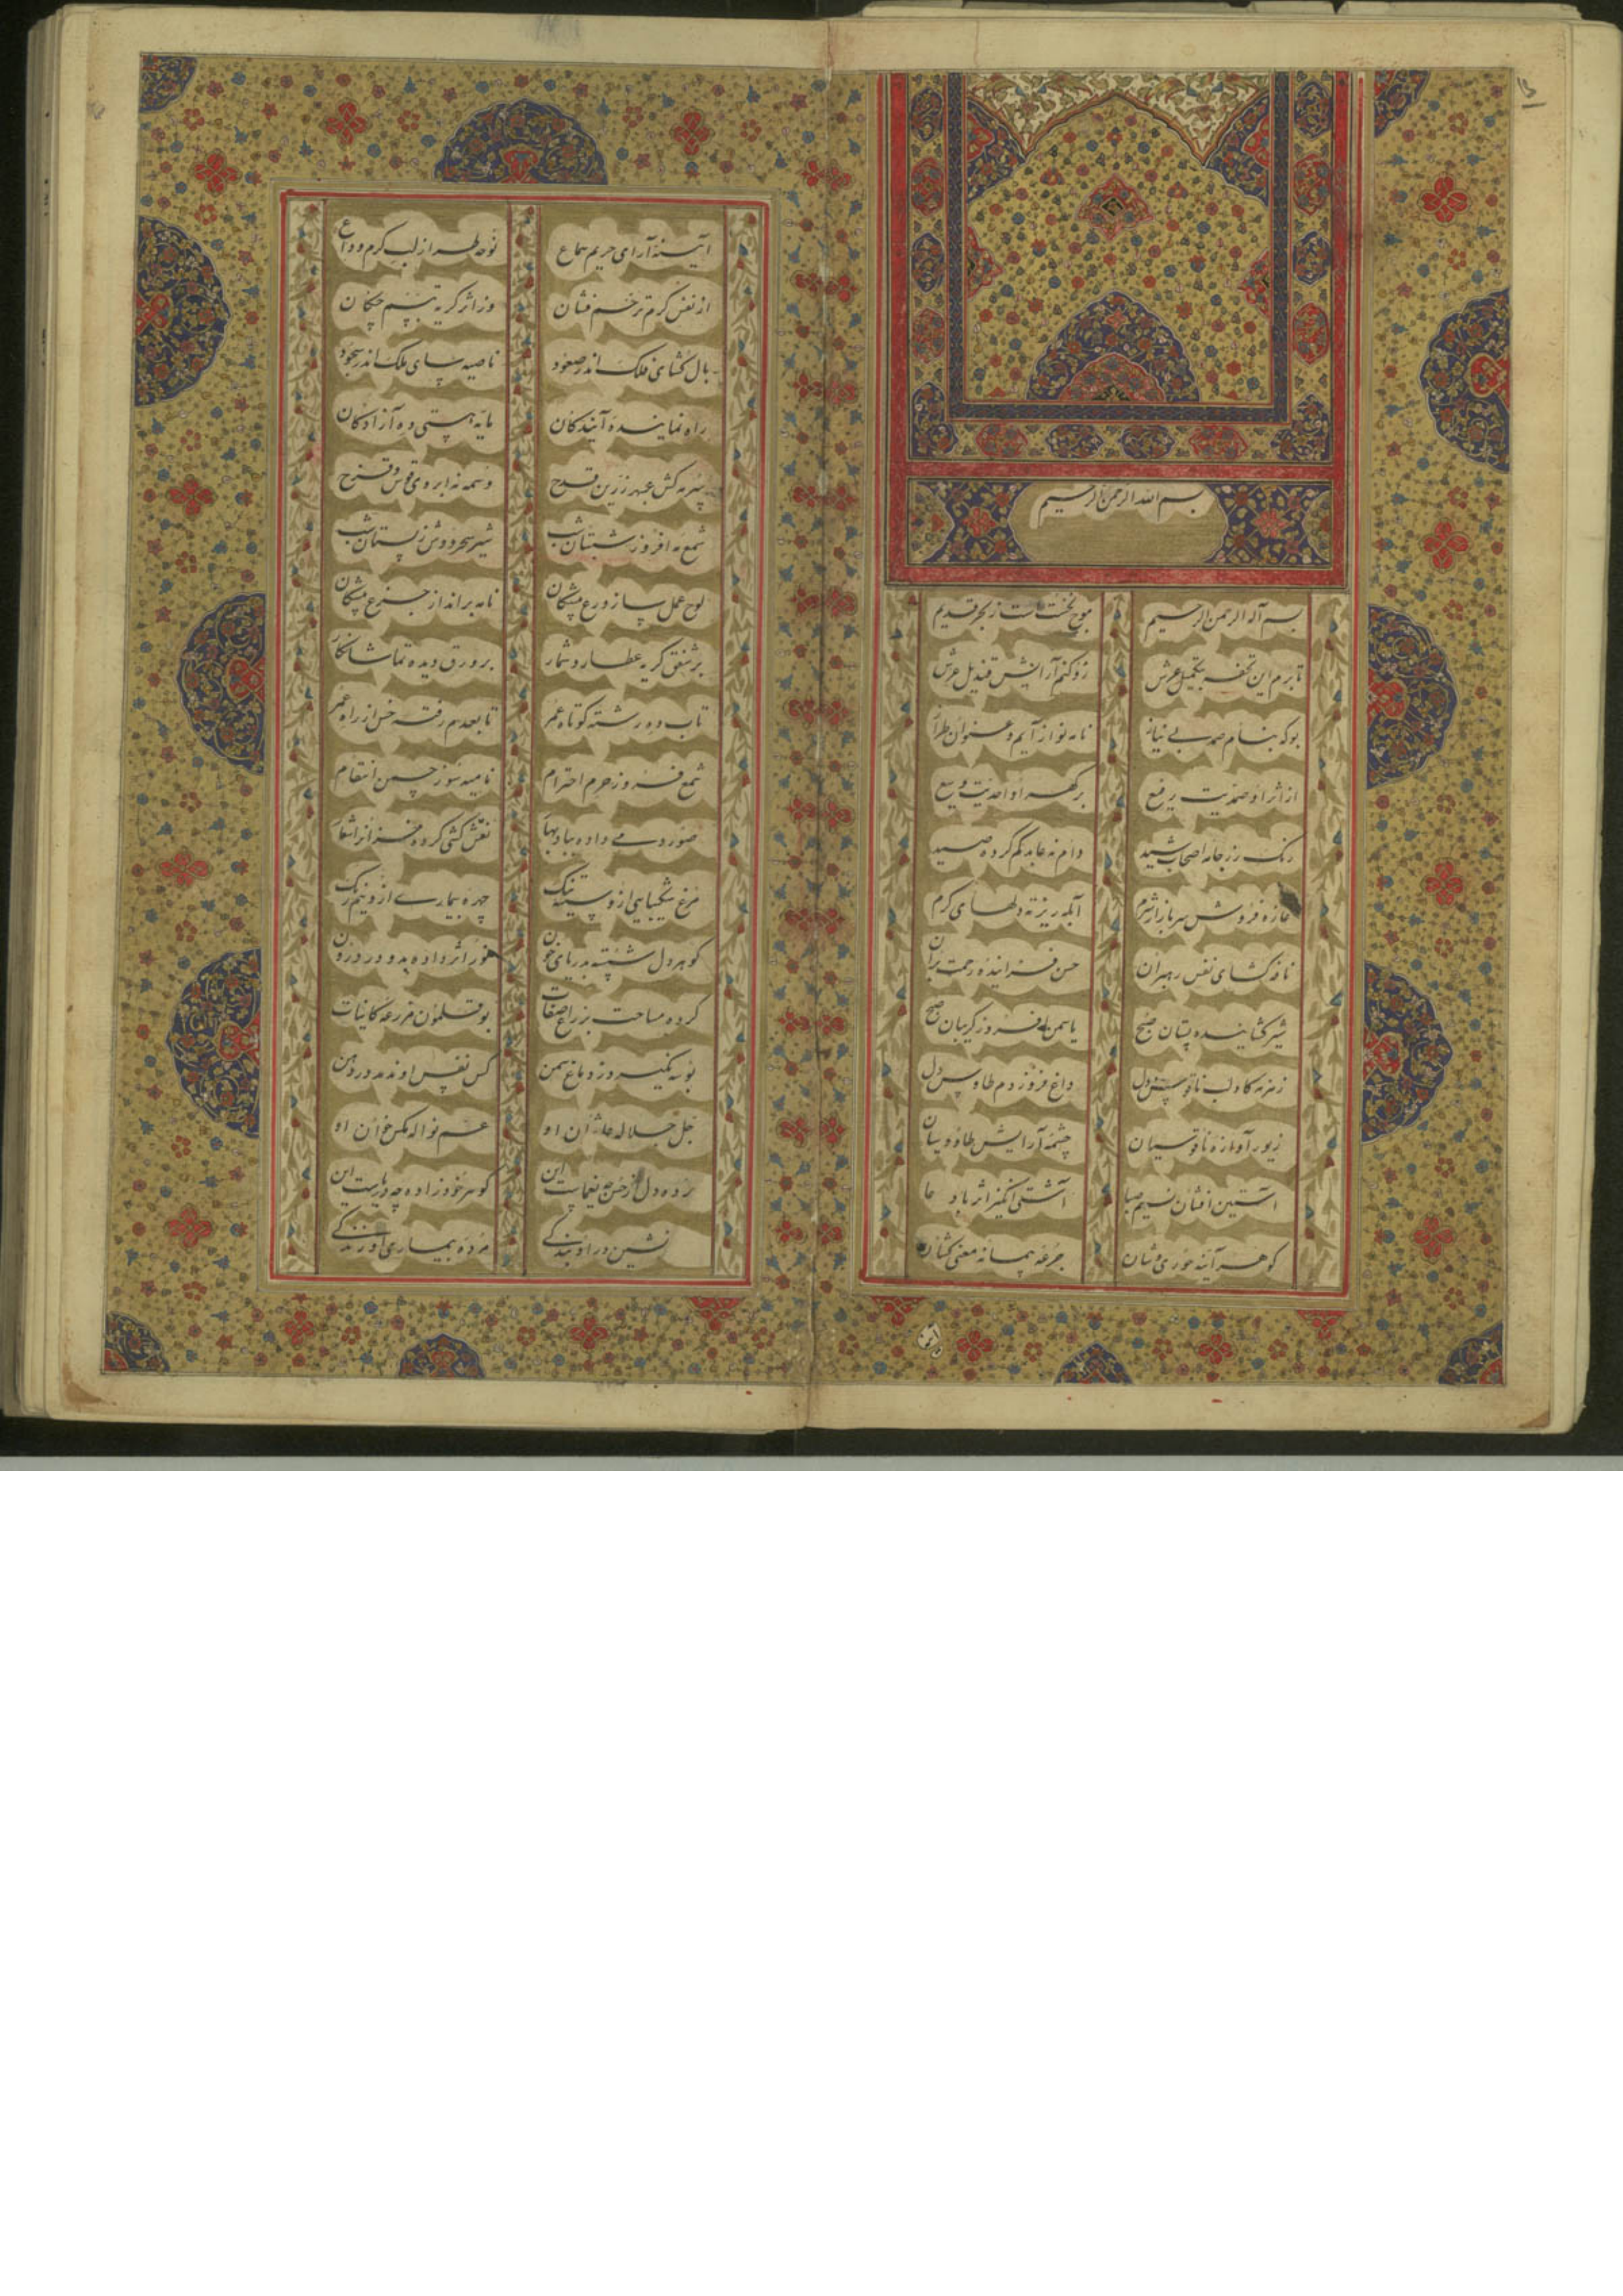 بسم الله الرحمن الرحیم
بسم اله الرحمن الرحیم موج نخست است ز بحر قدیم
تا برم این تحفه بتکمیل عرش زو کنم آرایش قندیل عرش
بو که بنام صمد بی نیاز نامه نواز آیم و عنوان طراز
از اثر او صمدیت رفیع بر گهر او احدیت وسیع
رنک رز جامه اصحاب شید دام نه عابد کم کرده صید
غازه فروش سر بازار شرم آبله ریز ته دلهای کرم
نافه کشای نفس رهبران حسن فزاینده رحمت بران
شیر کشاینده پستان صبح یاسمن افروز کریبان صبح
زمزمه کا و لب ناقوس دل داغ فروز دم طاوس دل
زیور آوازه ناقوسیان چشمه آرایش طاوسیان
آستین افشان نسیم صبا آشتی انگیز اثر با دعا
کوهر آینه موری وشان جرعه پیمانه معنی کشان
آینه آرای حریم سماع نوحه طراز لب کرم وداع
از نفس کرم ترحم فشان وز اثر کریه تبسم چکان
بال کشای فلک اندر صعود ناصیه سای ملک اندر سجود
راه نماینده آیندکان مایه هستی ده آزادکان
سرمه کش عبهر زرین قدح وسمه نه ابروی قوس و قزح
شمع مه افروز شبستان شب شیر سحر دوش ز پستان شب
لوح عمل ساز ورع پیشکان نامه برانداز جزع پیشکان
بر شفق کریه عطارد شمار بر ورق دیده تماشا نکار
تاب ده رشته کوتاه عمر تا بعدم رفته خس از راه عمر
شمع فروز حرم احترام ناصیه سوز چمن انتقام
صور دمی داده بباد بهار نعش کشی کرده خزانرا شعار
مرغ شکیبایی ازو سینه تنک چهره بیماری ازو نیم رنک
کوهر دل شسته بدریای خون نور اثر داده بدود درون
کرده مساحت بزراع صفات بوقلمون مزرعه کاینات
بوسه نکیرد ز دماغ سمن کس نفس او ندمد در دهن
جل جلاله علا شان او عم نواله مکس خوان او
کوهر خود زاده چه دریاست این
مژده بیماری او زندکی